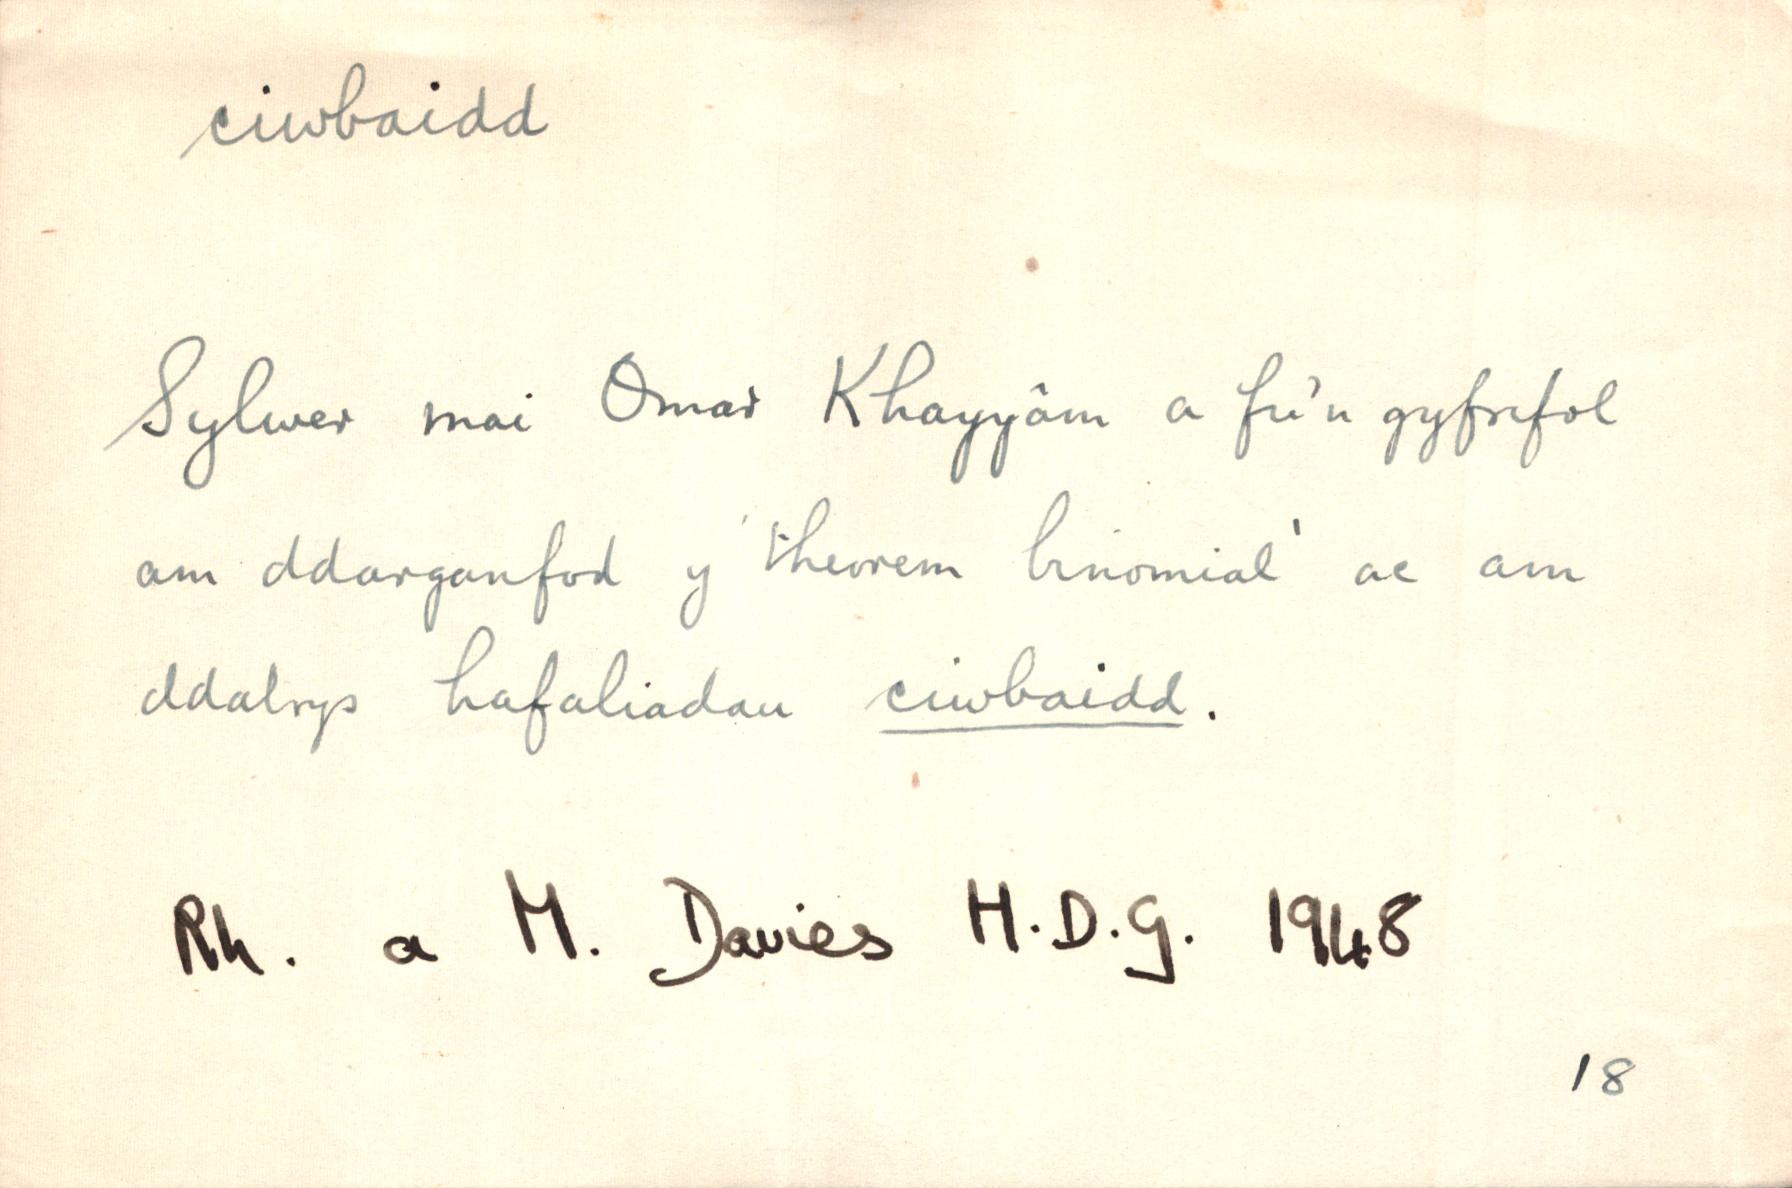 ciwbaidd
Sylwer mai Omar Khayyâm a fu'n gyfrifol
am ddarganfod y 'theorem binomial' ac am
ddatrys hafaliadau ciwbaidd.
Rh. a M. Davies H.D.G. 1948
18